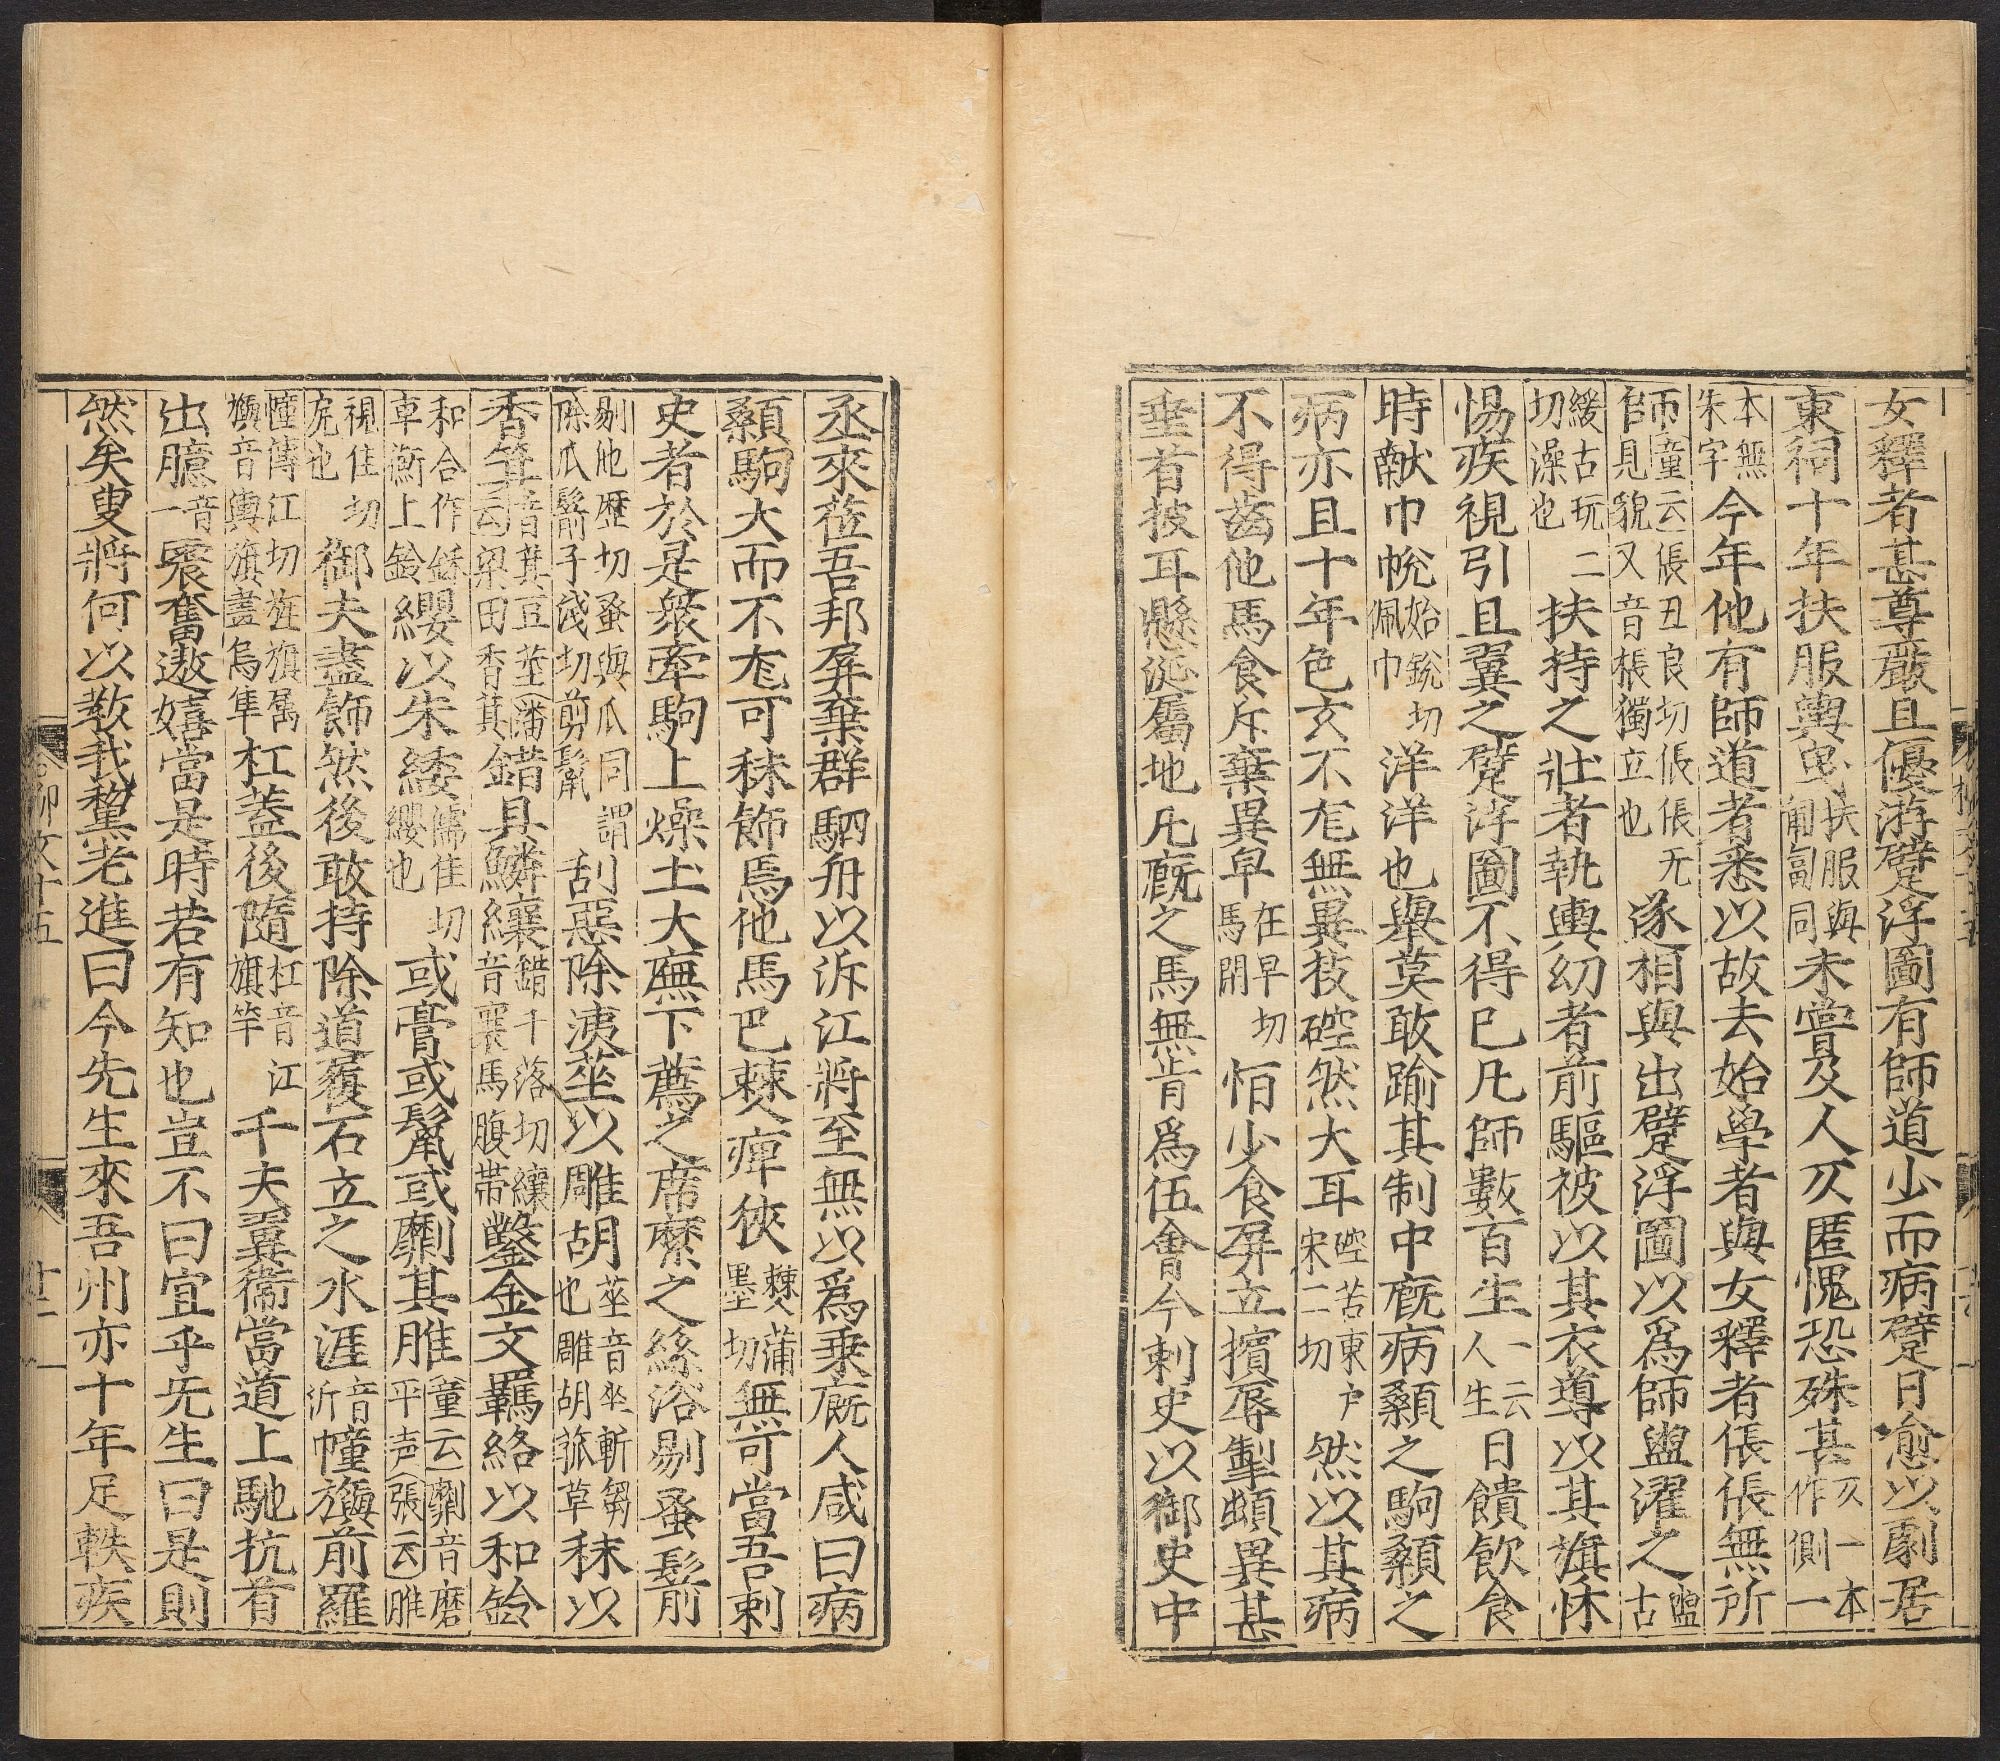 女釋者甚尊嚴且優游躄浮圖有師道少而病躄日愈以劇居
東祠十年扶服輿曳扶服與匍匐同未嘗及人仄匿愧恐殊甚仄一本作側一
本無朱字今年他有師道者悉以故去始學者與女釋者倀倀無所
師童云倀丑良切倀倀无自見貌又音棖獨立也遂相與出躄浮圖以爲師盥濯之盥古
緩古玩二切澡也扶持之壯者執輿幼者前驅被以其衣導以其旗怵
惕疾視引且翼之躄浮圖不得已凡師數百生一云人生日饋飲食
時獻巾帨始銳切佩巾洋洋也舉莫敢踰其制中廐病顙之駒顙之
病亦且十年色玄不尨無異技硿然大耳硿苦東户宋二切然以其病
不得齒他馬食斥棄異皁在早切馬閑恒少食屏立擯辱掣頓異甚
垂首披耳懸涎屬地凡廐之馬無肯爲伍會今刺史以御史中
丞來莅吾邦屏棄群駟舟以泝江將至無以爲乗廐人咸曰病
顙駒大而不尨可秣飾焉他馬巴僰庳狹僰蒲墨切無可當吾刺
史者於是衆牽駒上燥土大廡下薦之席縻之絲浴剔蚤鬋
剔他歷切蚤與爪同謂除爪鬋子淺切剪鬣刮惡除洟莝以雕胡莝音坐斬芻也雕胡菰草秣以
香萁音其豆莖潘云梁田香萁錯具鱗纕錯千落切纕音襄馬腹帶鑿金文羈絡以和鈴
和合作鉌車衡上鈴纓以朱緌儒隹切纓也或膏或鬣或劘其脽童云劘音磨平声張云脽
視隹切凥也御夫盡飾然後敢持除道履石立之水涯音沂幢旟前羅
幢傳江切旌旗屬旟音輿旗畫鳥隼杠蓋後隨杠音江旗竿千夫翼衞當道上馳抗首
出臆音一震奮遨嬉當是時若有知也豈不曰宜乎先生曰是則
然矣叟將何以教我黧老進曰今先生來吾州亦十年足軼疾
柳文十五